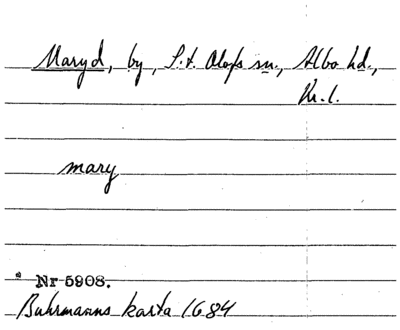 Maryd, by, S:t. Olofs sn., Albo hd.,
Kr. l.
mary
* Nr 5908.
Buhrmanns karta 1684